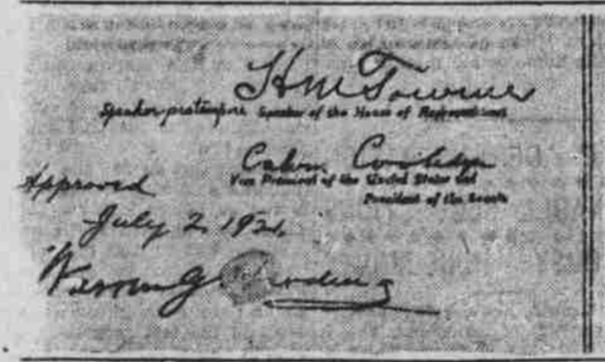 H M Towner
Speaker protempore Speaker of the House of Representatives
Calvin Coolidge
Vice President of the United States and
President of the Senate
Approved
July 2 1921
Warren G Harding